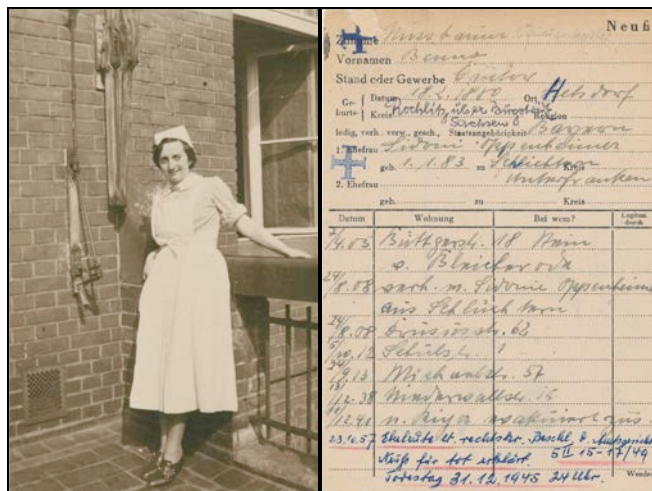 Neuß
Zuname Nussbaum
Vornamen Benno
Stand oder Gewerbe Cantor
Ge-burts- Datum 18.2.1880 Ort Helsdorf
Kreis Rochlitz über Burgstädt Religion
Sachsen
ledig, verh. verw. gesch., Staatsangehörigkeit Bayern
1. Ehefrau Sidonie Oppenheimer
geb. 1.1.83 zu Schlüchtern Kreis
2. Ehefrau Unterfranken
geb. zu Kreis
Datum Wohnung Bei wem? Legitim. durch
/4.03 Büttgerstr. 18 Stein
v. Bleicherode
24/8.08 verh. m. Sidonie Oppenheimer
aus Schlüchtern
24/8.08 Drususstr. 62
/10.12 Schulstr. 1
/9.13 Michaelstr. 57
/12.38 Niederwallstr. 15
/12.41 n. Riga evakuiert
23.10.57 Eheleute lt. rechtskr. Beschl. d. Amtsgerichts
Neuß für tot erklärt. 5 II 15-17/49
Todestag 31.12.1945 24 Uhr.
Wenden